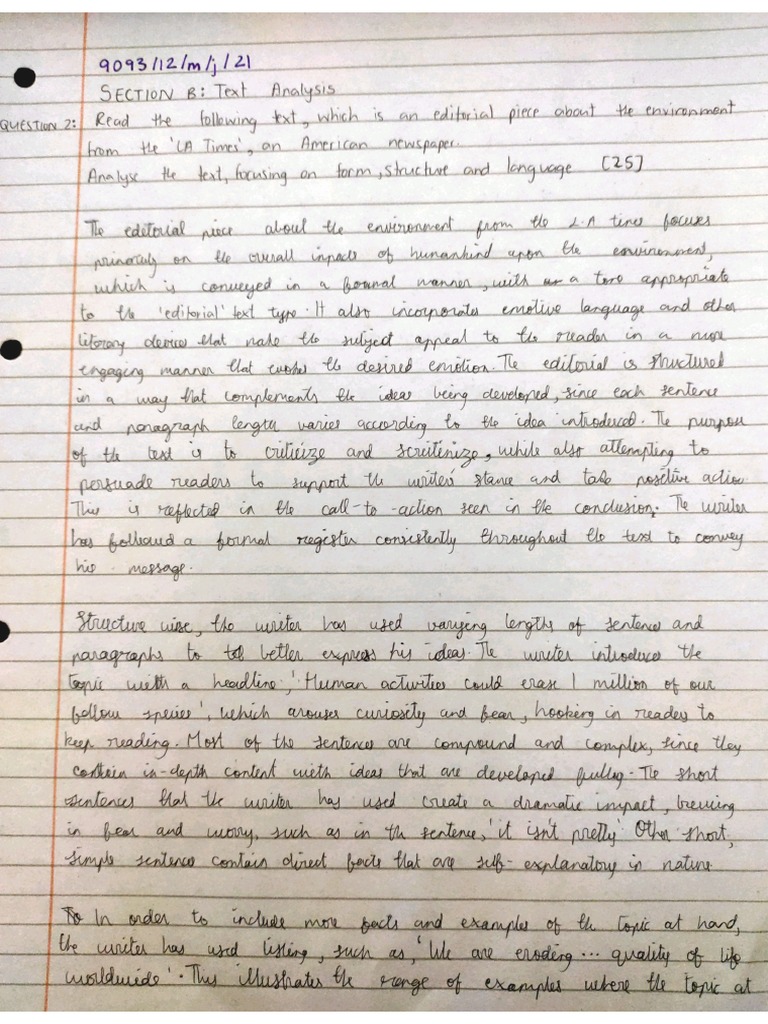 9093/12/m/j/21
SECTION B: Text Analysis
QUESTION 2: Read the following text, which is an editorial piece about the environment
from the 'LA Times', an American newspaper.
Analyse the text, focusing on form, structure and language [25]
The editorial piece about the environment from the L.A times focuses
primarily on the overall impacts of humankind upon the environment,
which is conveyed in a formal manner, with a tone appropriate
to the 'editorial' text type. It also incorporates emotive language and other
literary devices that make the subject appeal to the reader in a more
engaging manner that evokes the desired emotion. The editorial is structured
in a way that complements the ideas being developed, since each sentence
and paragraph length varies according to the idea introduced. The purpose
of the text is to criticize and scruitinize, while also attempting to
persuade readers to support the writers' stance and take positive action.
This is reflected in the call-to-action seen in the conclusion. The writer
has followed a formal register consistently throughout the text to convey
his message.
Structure wise, the writer has used varying lengths of sentences and
paragraphs to better express his ideas. The writer introduces the
topic with a headline, 'Human activities could erase 1 million of our
fellow species', which arouses curiosity and fear, hooking in readers to
keep reading. Most of the sentences are compound and complex, since they
contain in-depth content with ideas that are developed fully. The short
sentences that the writer has used create a dramatic impact, brewing
in fear and worry, such as in the sentence, 'it isn't pretty' Other short,
simple sentences contain direct facts that are self-explanatory in nature
In order to include more facts and examples of the topic at hand,
the writer has used listing, such as, 'We are eroding... quality of life
worldwide'. This illustrates the range of examples where the topic at